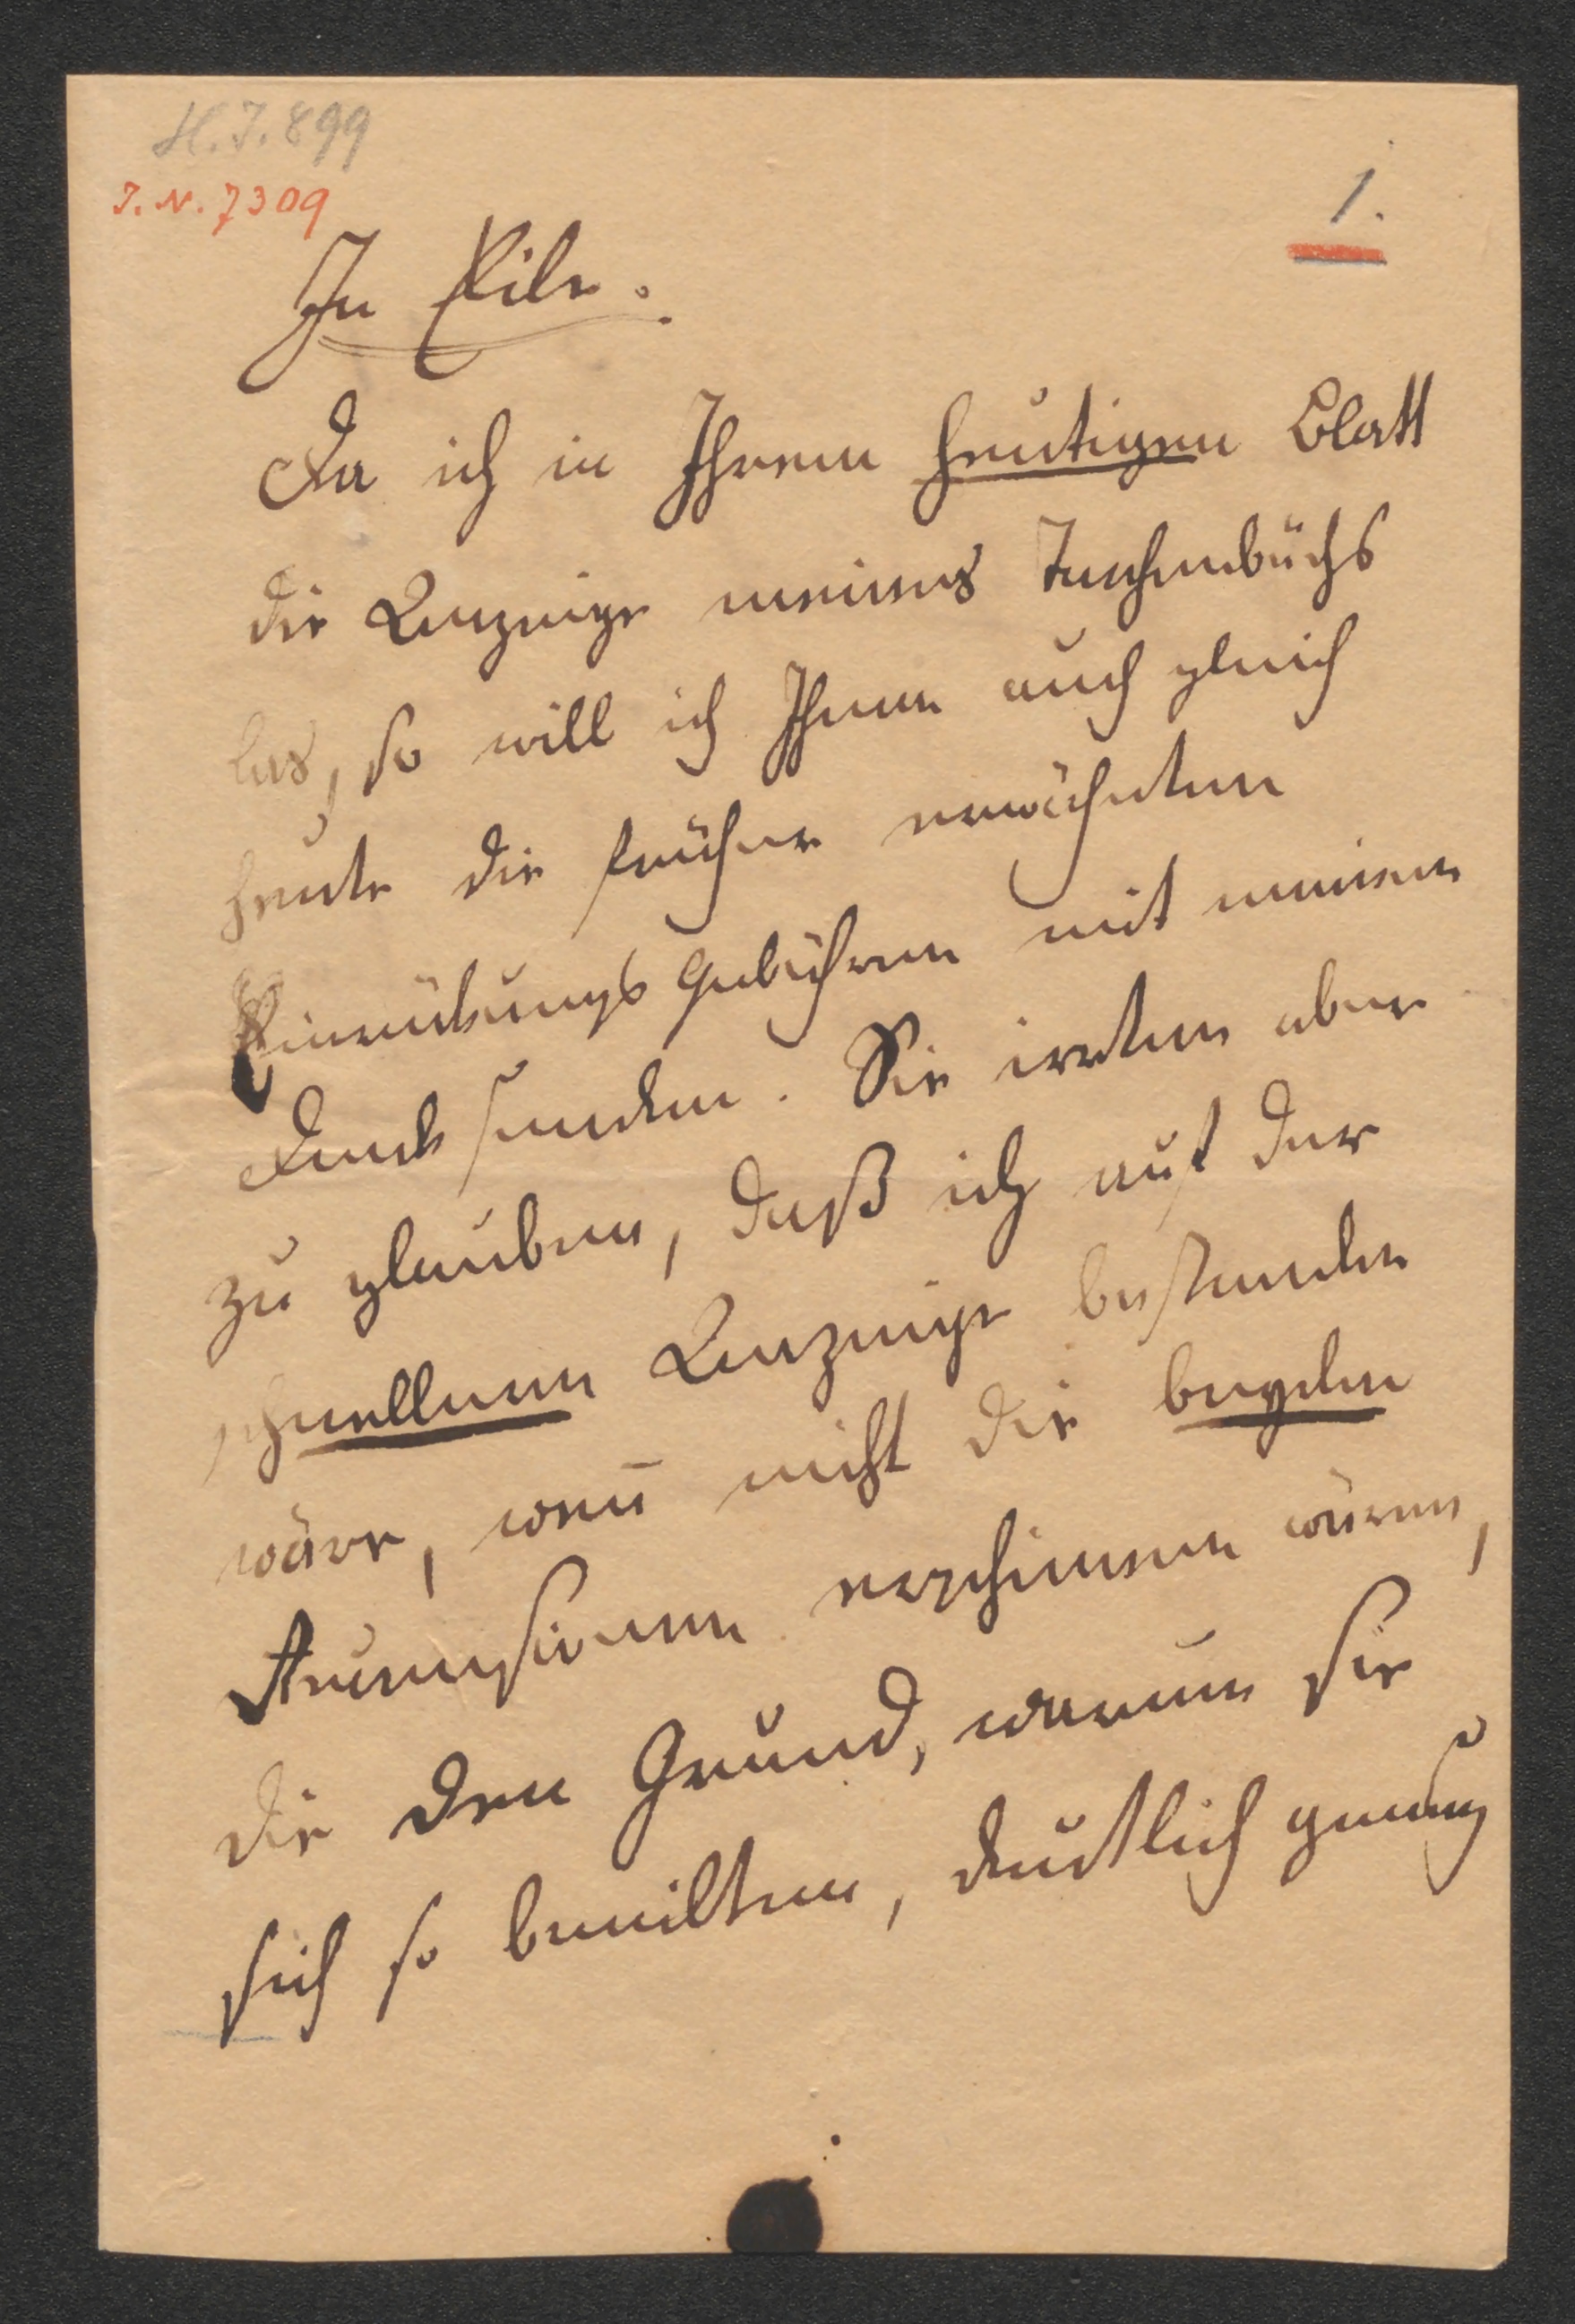 H.I. 899
I.N. 7309
1.
In Eile.
Da ich in Ihrem heutigen Blatt
die Anzeige meines Taschenbuchs
las, so will ich Ihnen auch gleich
heute die früher erwähnten
Einrückungs Gebühren mit meinem
Dank senden. Sie irrten aber
zu glauben, daß ich auf der
schnellern Anzeige bestanden
wäre, wenn nicht die beyden
Recensionen erschienen wären,
die den Grund, warum sie
sich so beeilten, deutlich genung